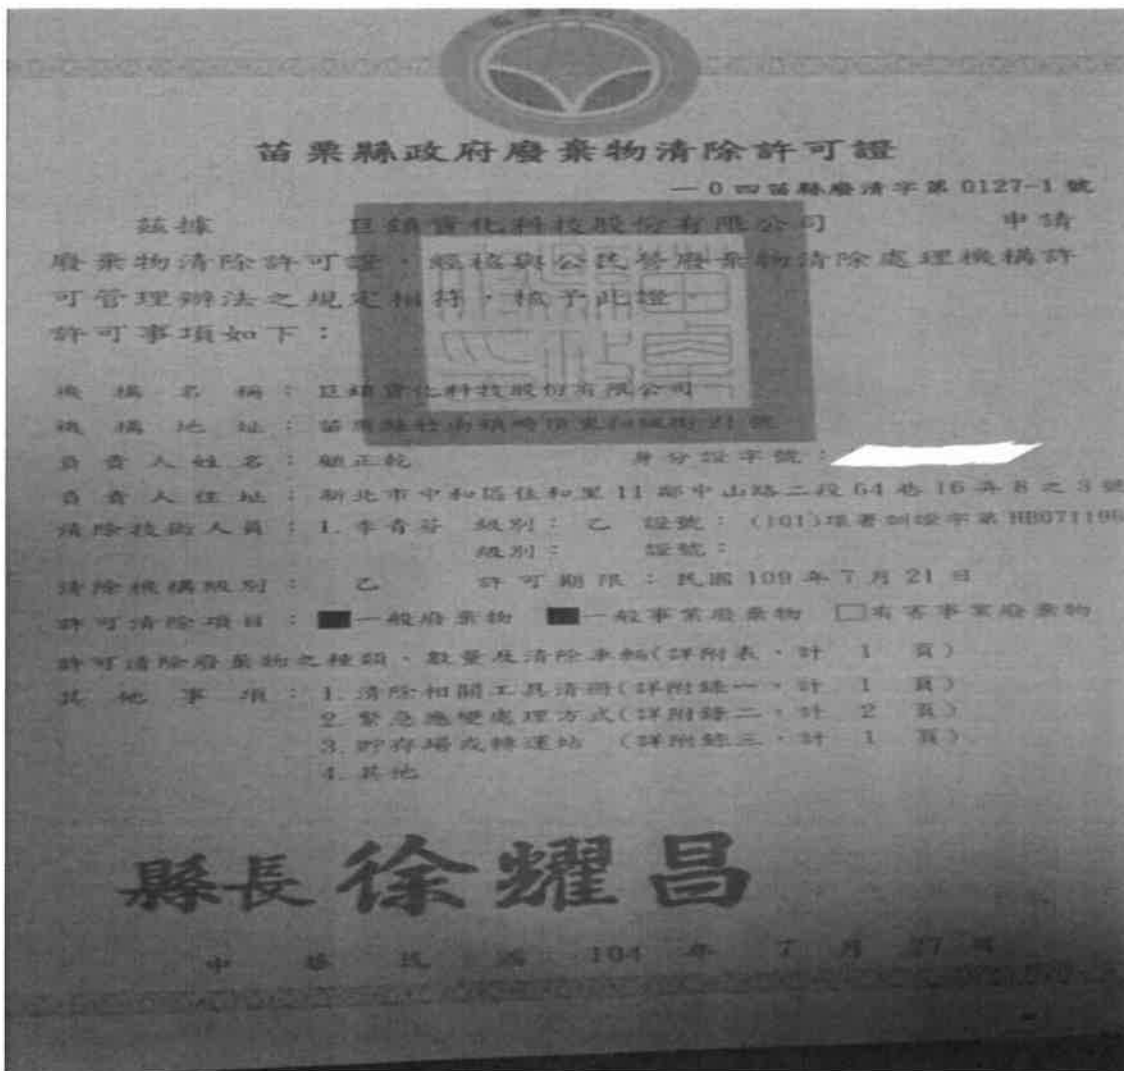 苗栗縣政府廢棄物清除許可證
一0四苗縣廢清字第 0127-1 號
茲據 巨鎮資化科技股份有限公司 申請
廢棄物清除許可證,經核與公民營廢棄物清除處理機構許
可管理辦法之規定相符,核予此證。
許可事項如下:
機構名稱:巨鎮資化科技股份有限公司
機構地址:苗栗縣竹南鎮崎頂里 21 號
負責人姓名:顧正乾 身分證字號:
負責人住址:新北市中和區佳和里 11 鄰中山路二段 64 巷 16 弄 8 之 3 號
清除技術人員:1. 李青芬 級別:乙 證號:(101)環署訓證字第 HB071196
級別: 證號:
清除機構級別: 乙 許可期限:民國 109 年 7 月 21 日
許可清除項目:■一般廢棄物 ■一般事業廢棄物 □有害事業廢棄物
許可清除廢棄物之種類、數量及清除車輛(詳附表,計 1 頁)
其他事項:1. 清除相關工具清冊(詳附錄一,計 1 頁)
2. 緊急應變處理方式(詳附錄二,計 2 頁)
3. 貯存場或轉運站 (詳附錄三,計 1 頁)
4. 其他
縣長 徐耀昌
中華民國 104 年 7 月 27 日